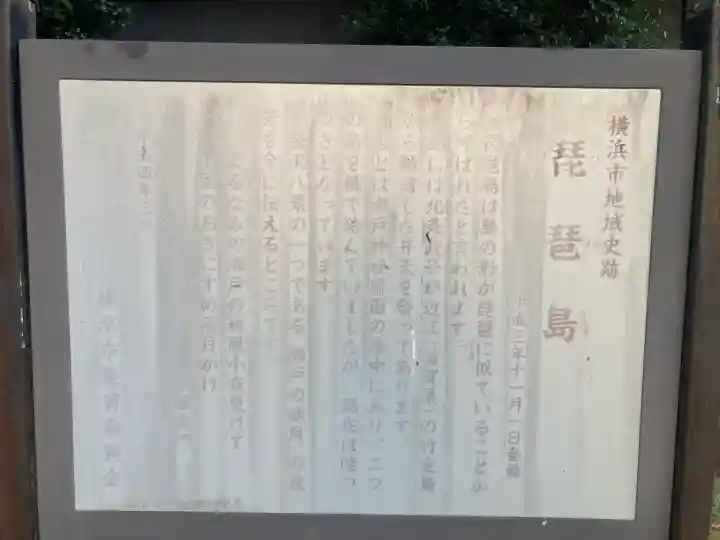 横浜市地域史跡
琵琶島
平成三年十一月一日登録
琵琶島は島の形が琵琶に似ていることか
らよばれたと言われます
には北条政子が近江の竹生島
から勧請した弁天を祭ってあります
もとは瀬戸神社前面の海中にあり、二つ
の島を橋で結んでいましたが、現在は陸つ
づきとなっています
八景の一つである瀬戸の秋月の
を今に伝えるところです
よるなみの瀬戸の秋風小夜更けて
のおきにすめる月かけ
平成四年三月
横浜市教育委員会